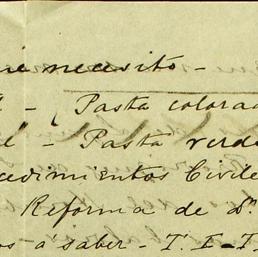 necesito -
- Pasta colorad
- Pasta verde
edimientos Civile
Reforma de Dn
os a saber - T. I - T.